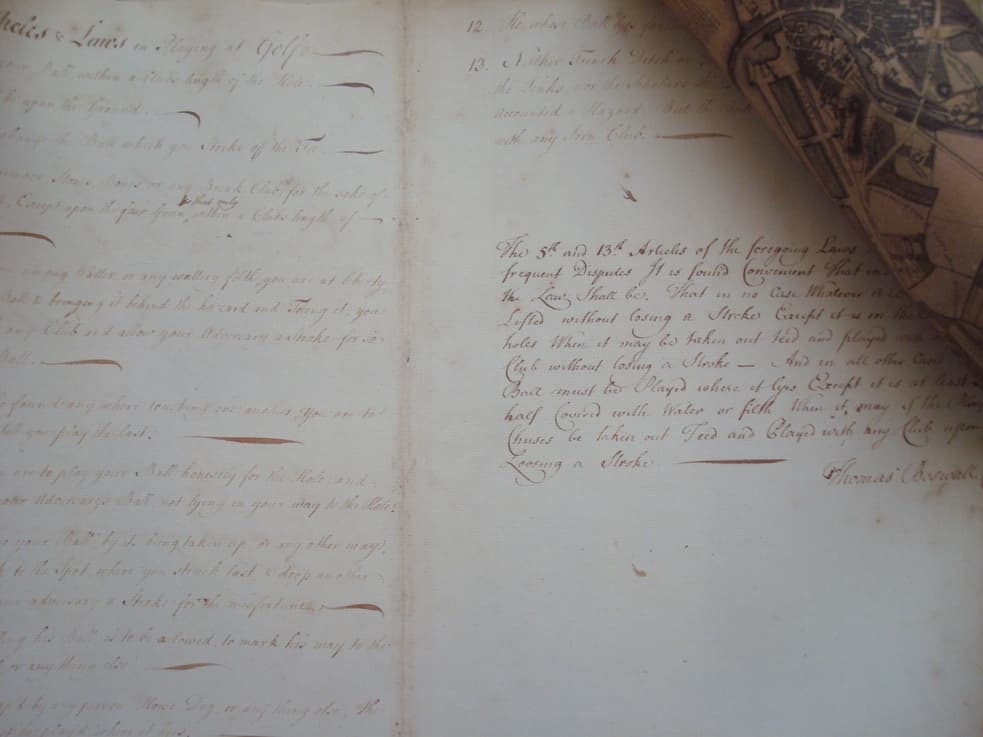 & Laws in Playing at Golf
your Ball within a Club length of the Hole.
be upon the Ground.
change the Ball which you Stroke off the Tee
Stones, Bones or any Break Club for the sake of
that only
Except upon the fair Green within a Clubs length of
among Watter or any wattery filth, you are at liberty
Ball & bringing it behind the hazard and Teeing it, you
any Club and allow your Adversary a Stroke for so
Ball.
found any where touching one another, you are to
till you play the last.
are to play your Ball honestly for the Hole and
your Adversarys Ball not lying in your way to the Hole.
your Ball by it being taken up or any other way
to the Spot where you struck last & drop another
adversary a Stroke for the misfortune
his Ball is to be allowed to mark his way to the
or any thing else
by any person, Horse Dog or any thing else, The
12. He whose Ball lyes
13. Neither Trench Ditch or
the Links, nor the Scholars
accounted a Hazard. But the
with any Iron Club.
The 5th and 13th Articles of the foregoing Laws
frequent Disputes It is found Convenient That in
the Law Shall be. That in no Case Whatever a
Lifted without losing a Stroke Except it is in the
holes When it may be taken out teed and played
Club without losing a Stroke — And in all other Cases
Ball must be Played where it lyes Except it is at least
half Covered with Water or filth When it may if the
Chuses be taken out Teed and Played with any Club upon
Loosing a Stroke
Thomas Boswall